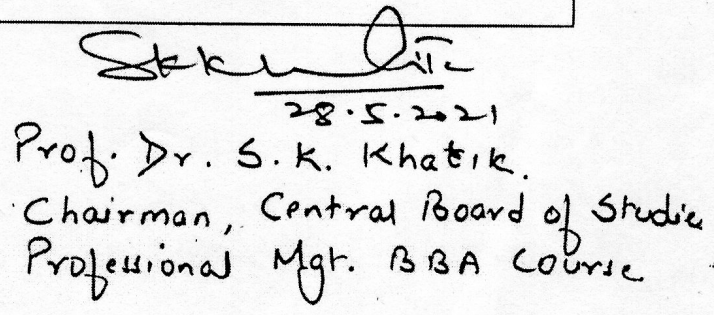 28.5.2021
Prof. Dr. S.K. Khatik.
Chairman, Central Board of Studie
Professional Mgt. BBA Course